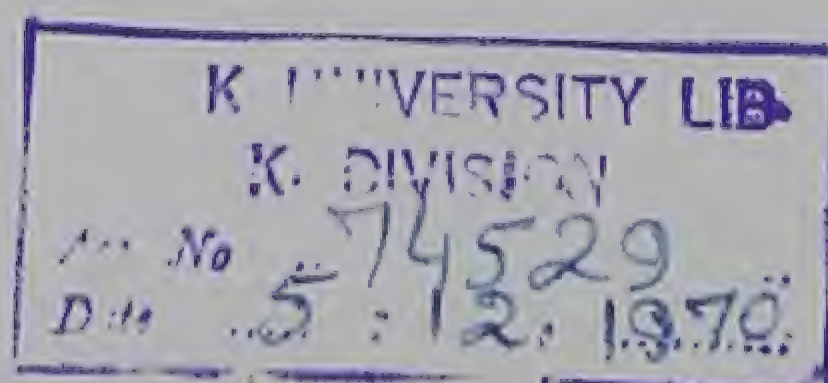 K UNIVERSITY LIB
K. DIVISION
No 74529
Date 5:12.1970